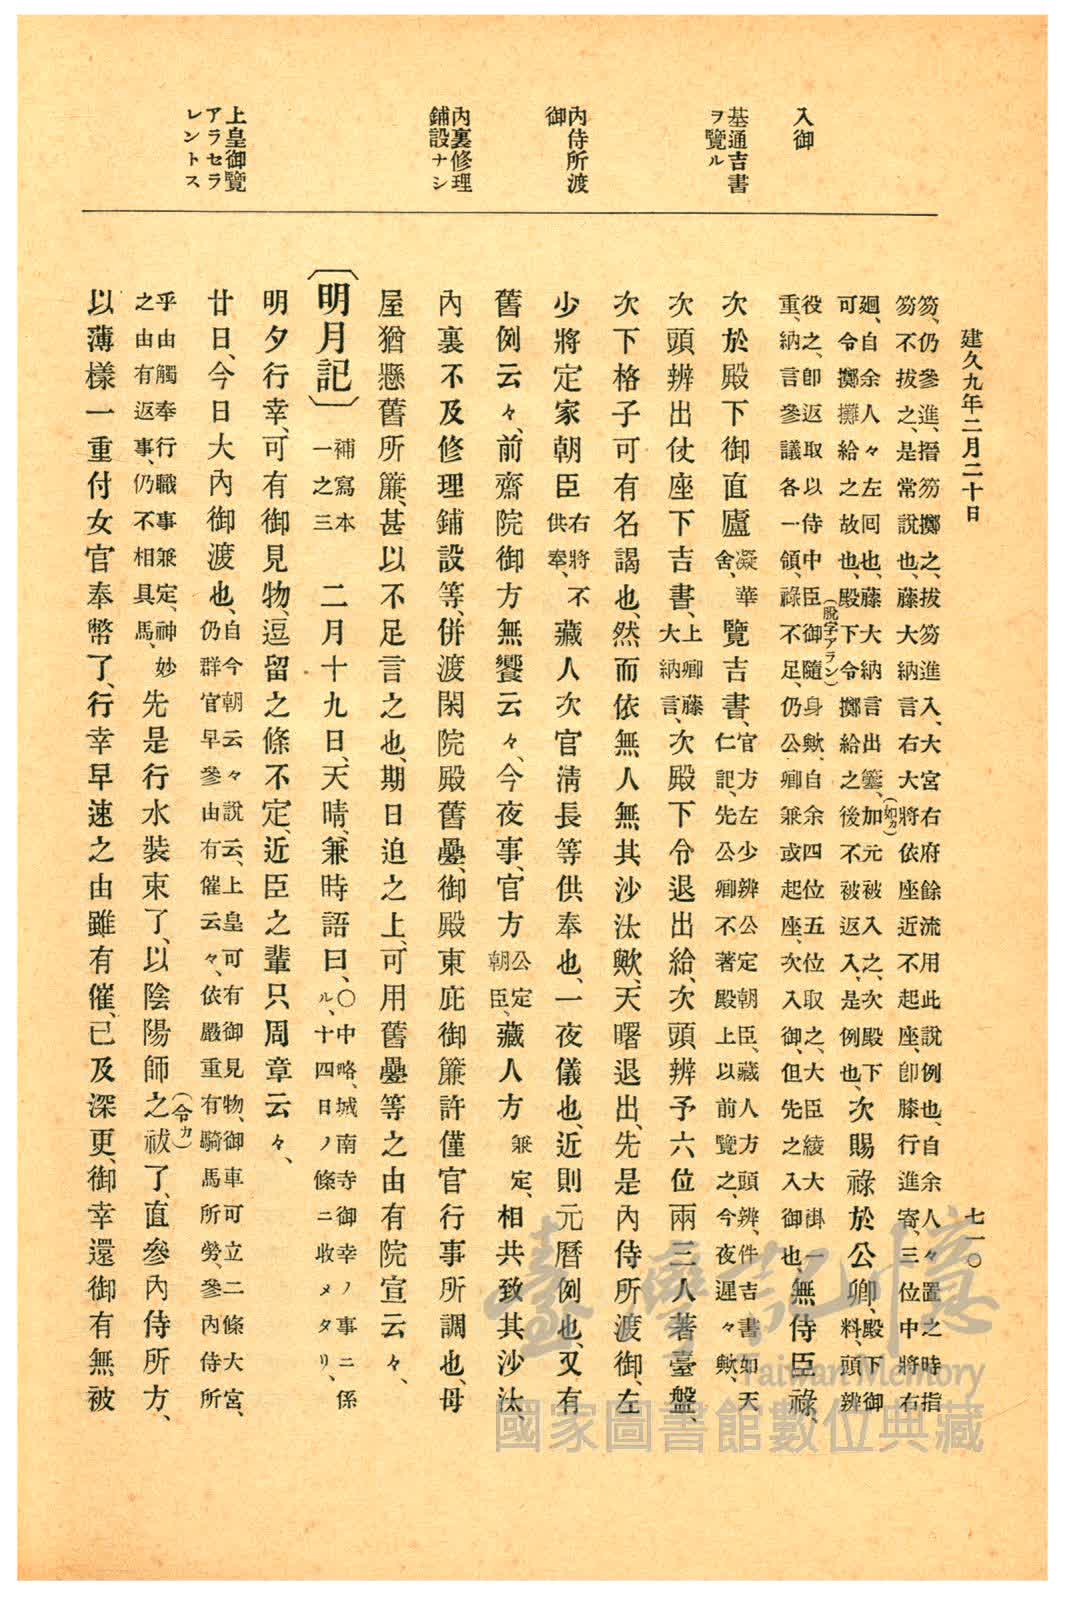 建久九年二月二十日
七一〇
入御
基通吉書
ヲ覽ル
內侍所渡
御
內裏修理
鋪設ナシ
上皇御覽
アラセラ
レントス
笏、仍參進、搢笏擲之、拔笏進入、大宮右府餘流用此說例也、自余人々置之時指
笏不拔之、是常說也、藤大納言右大將依座近不起座、卽膝行進寄、三位中將右
廻、自余人々左囘也、藤大納言出簺、加元被入之、次殿下
(如カ)
可令擲攤給之故也、殿下令擲給之後不被返入、是例也、次賜祿於公卿、殿下御
料、頭辨
役之、卽返取以侍中臣御隨身歟、自余四位五位取之、大臣綾大褂一
(脫字アラン)
重、納言參議各一領、祿不足、仍公卿兼或起座、次入御、但先之入御也、無侍臣祿、
次於殿下御直廬凝華
舍、覽吉書、官方左少辨公定朝臣、藏人方頭辨、件吉書如天
仁記、先公卿不著殿上以前覽之、今夜遲々歟、
次頭辨出仗座下吉書、上卿藤
大納言、次殿下令退出給、次頭辨予六位兩三人著臺盤、
次下格子可有名謁也、然而依無人無其沙汰歟、天曙退出、先是內侍所渡御、左
少將定家朝臣右將不
供奉、藏人次官淸長等供奉也、一夜儀也、近則元曆例也、又有
舊例云々、前齋院御方無饗云々、今夜事、官方公定
朝臣、藏人方兼定、相共致其沙汰、
內裏不及修理鋪設等、併渡閑院殿舊疊、御殿東庇御簾許僅官行事所調也、母
屋猶懸舊所簾、甚以不足言之也、期日迫之上、可用舊疊等之由有院宣云々、
〔明月記〕補寫本
一之三　二月十九日、天晴、兼時語曰、〇中略、城南寺御幸ノ事ニ係
ル、十四日ノ條ニ收メタリ、
明夕行幸、可有御見物、逗留之條不定、近臣之輩只周章云々、
廿日、今日大內御渡也、自今朝云々說云、上皇可有御見物、御車可立二條大宮、
仍群官早參由有催云々、依嚴重有騎馬所勞、參內侍所
乎由觸奉行職事兼定、神妙
之由有返事、仍不相具馬、先是行水裝束了、以陰陽師之祓了、直參內侍所方、
(令カ)
以薄樣一重付女官奉幣了、行幸早速之由雖有催、已及深更、御幸還御有無、被